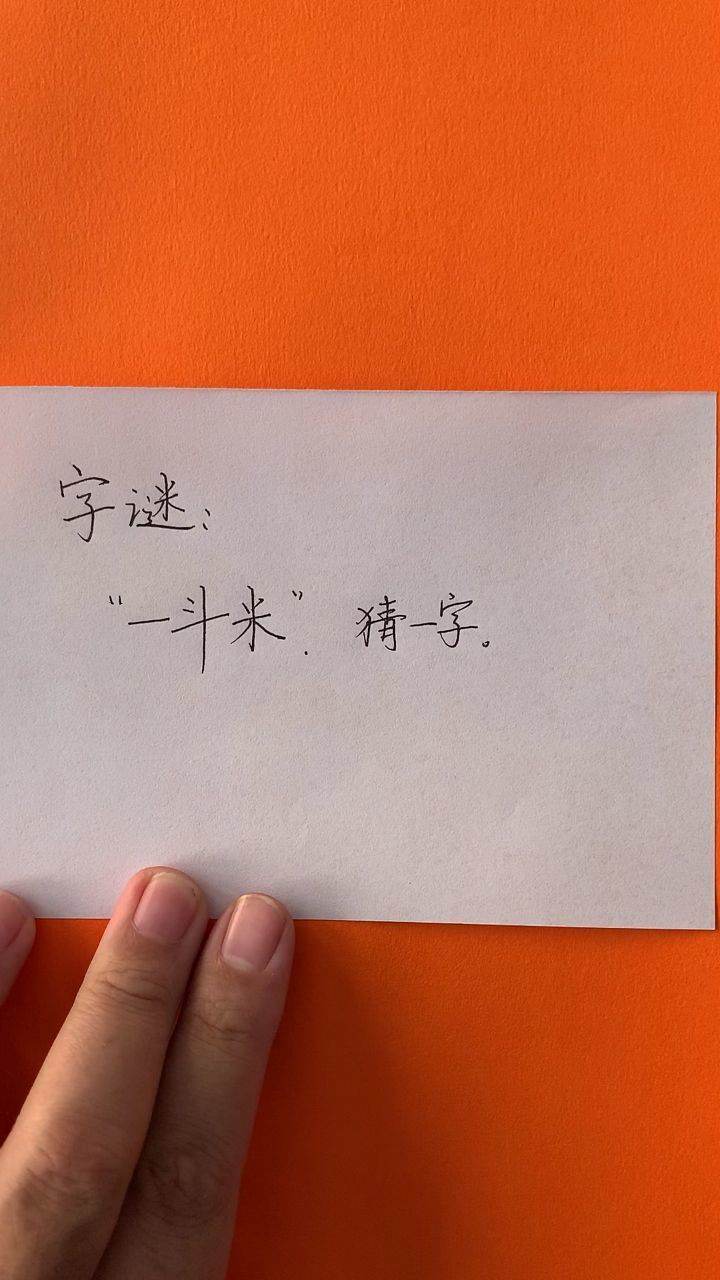 字谜：
“一斗米”. 猜一字。